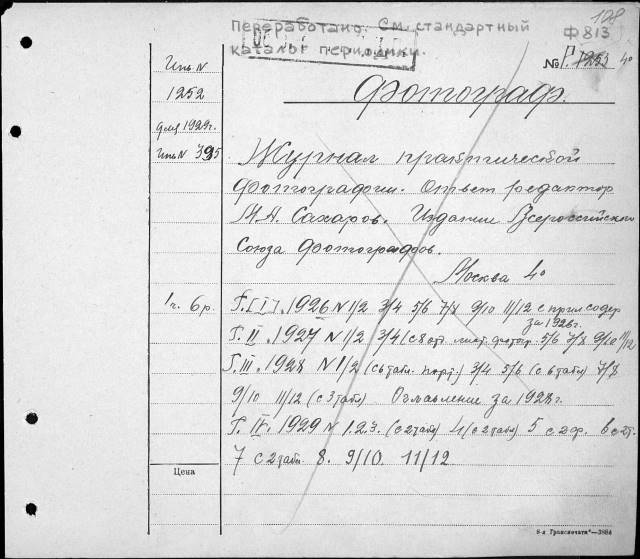 108
Переработано. См. стандартный
каталог периодики.
Ф 813
№ Р. 1253 4°
Инв. N
1252
фев 1929г.
Инв N 395
Фотограф.
Журнал практической
фотографии. Ответ редактор
М.А. Сахаров. Издание Всероссийского
Союза Фотографов.
Москва 4°
1ч. 6р.
Г. I 1926 N 1/2 3/4 5/6 7/8 9/10 11/12 с прил содер
за 1926г.
Г. II. 1927 N 1/2 3/4 (с 8 5/6 7/8 9/10 11/12
Г. III. 1928 N 1/2 (с 6 табл. порт.) 3/4 5/6 (с 6 табл) 7/8
9/10 11/12 (с 3 табл) Оглавление за 1928г.
Г. IV. 1929 N 1.2.3. (с 2 табл) 4 (с 2 табл) 5 с 2 ф. в ст.
7 с 2 табл. 8. 9/10. 11/12
Цена
8-я „Транспечать“—3884